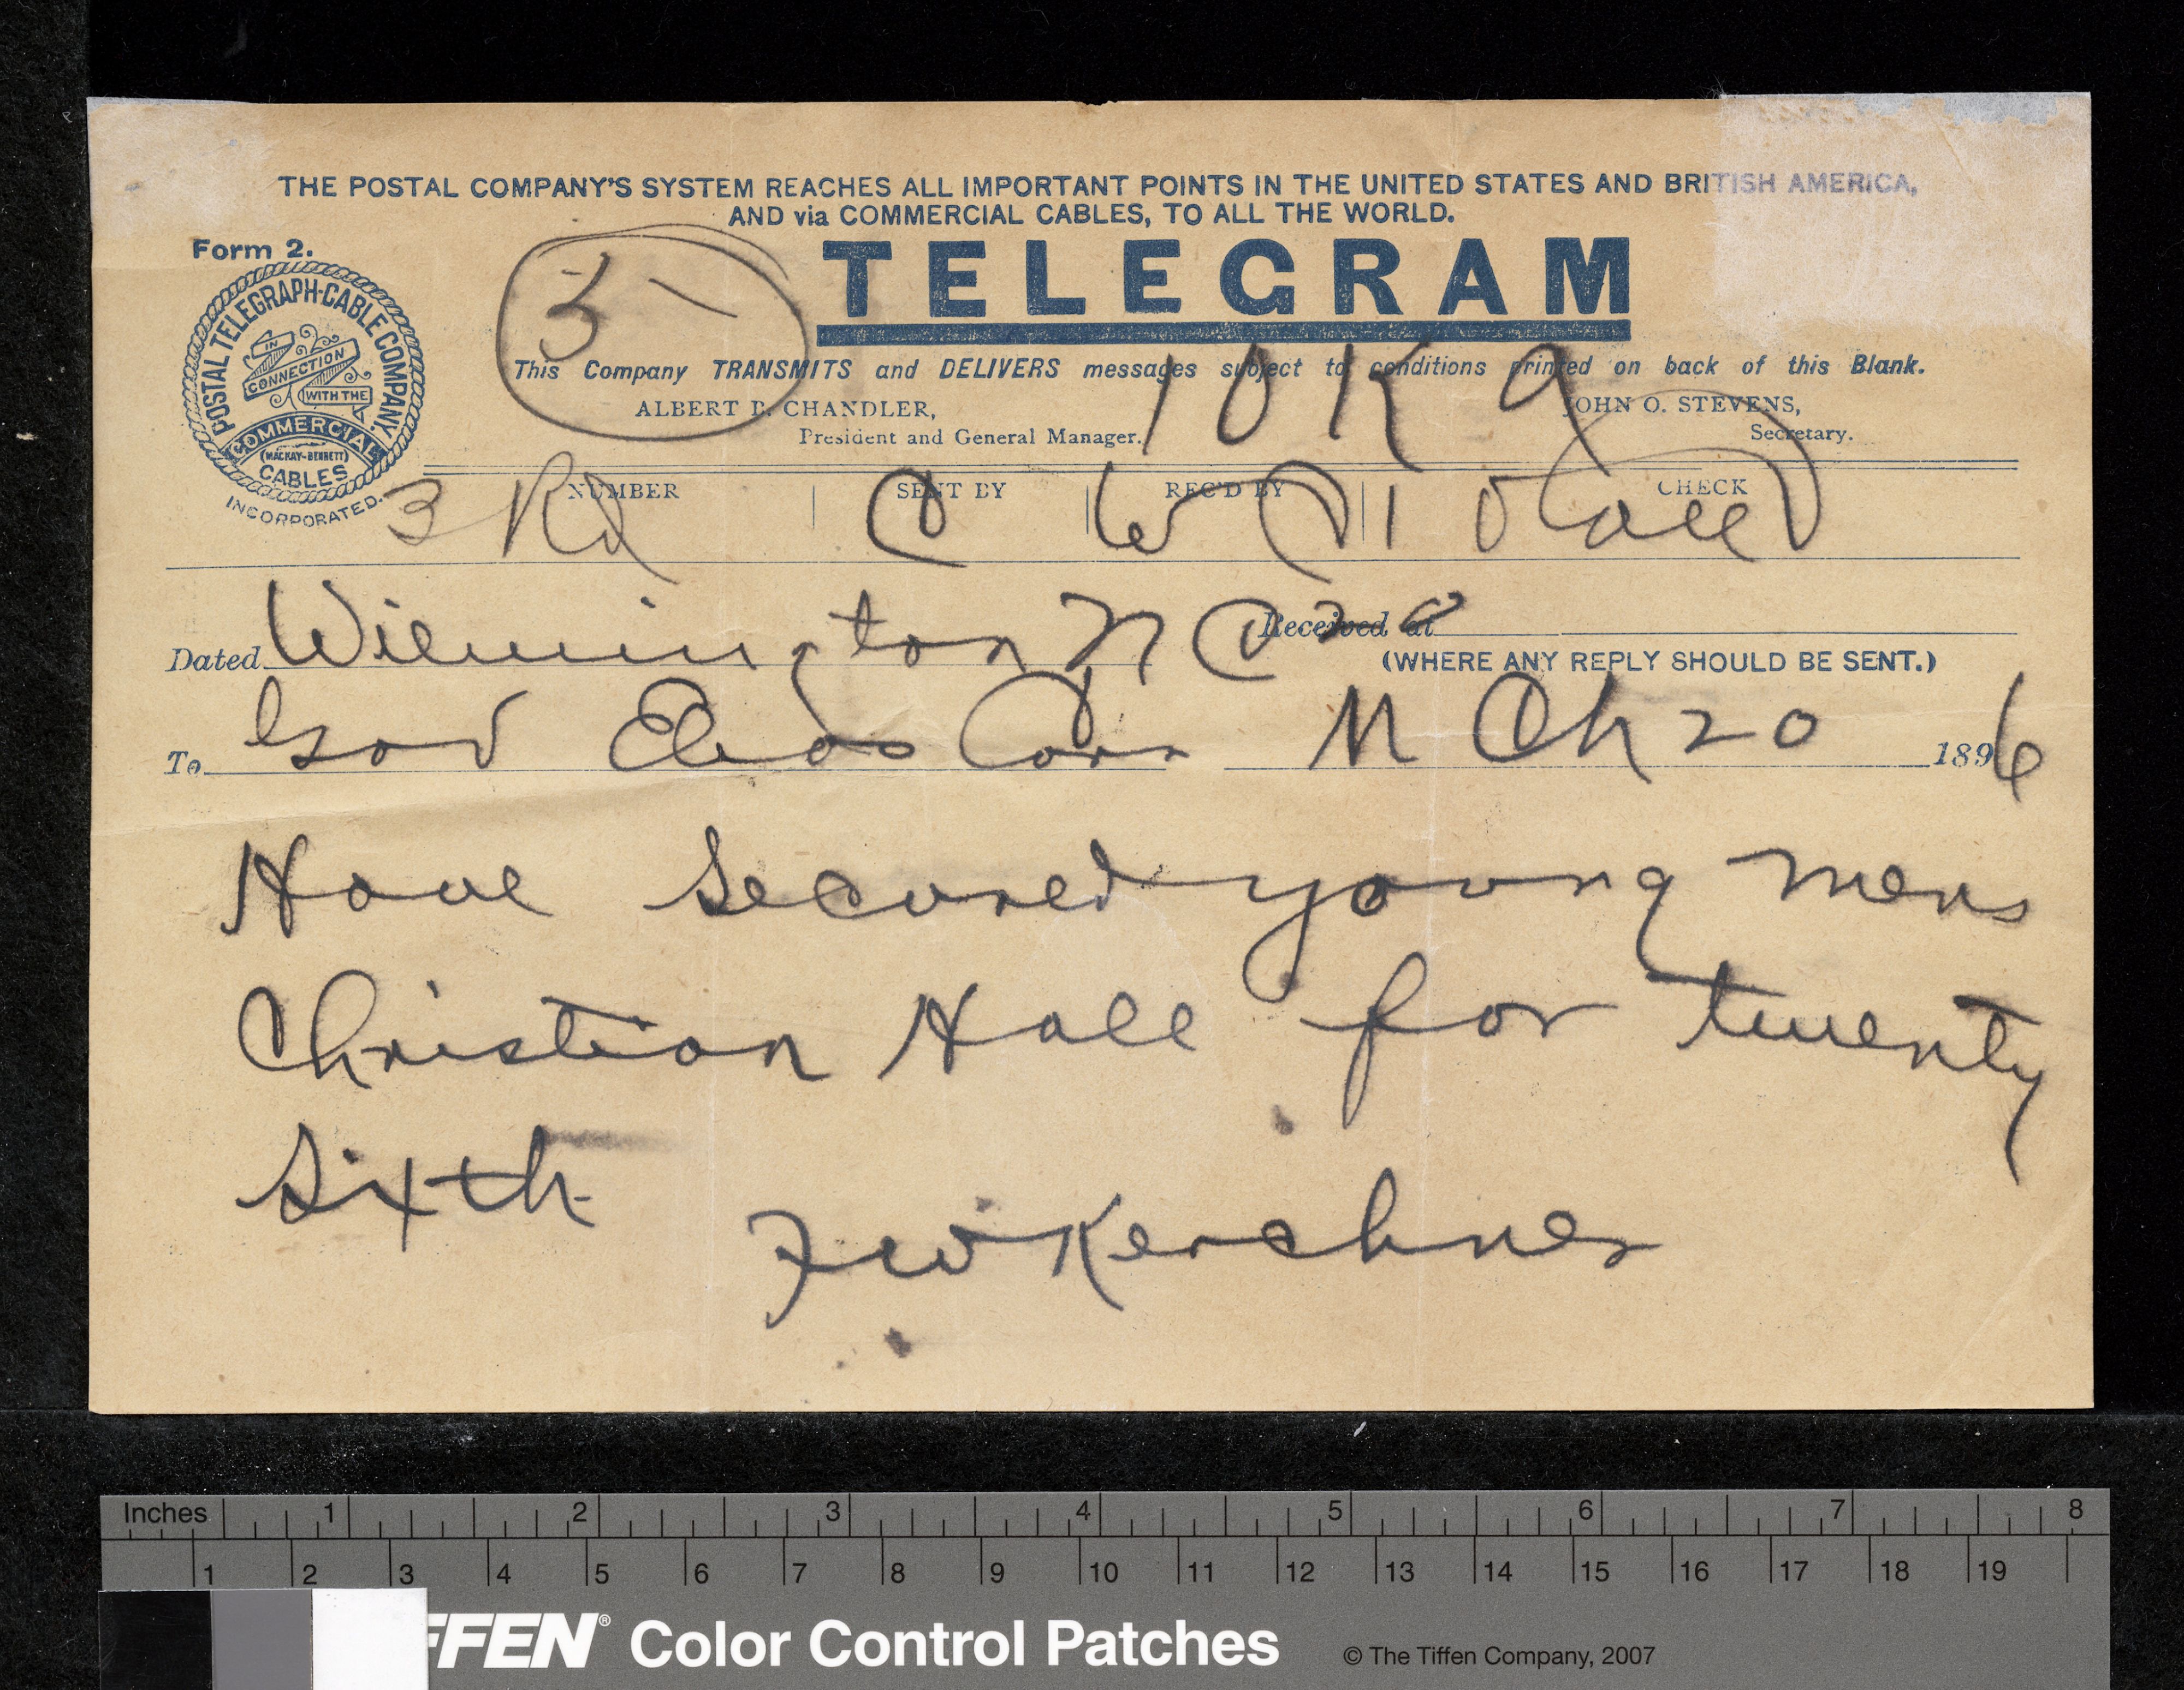 THE POSTAL COMPANY'S SYSTEM REACHES ALL IMPORTANT POINTS IN THE UNITED STATES AND BRITISH AMERICA,
AND via COMMERCIAL CABLES, TO ALL THE WORLD.
Form 2.
TELEGRAM
POSTAL TELEGRAPH-CABLE COMPANY.
IN CONNECTION WITH THE
COMMERCIAL
(MACKAY-BENNETT)
CABLES
INCORPORATED.
3
This Company TRANSMITS and DELIVERS messages subject to conditions printed on back of this Blank.
ALBERT B. CHANDLER,
President and General Manager.
JOHN O. STEVENS,
Secretary.
10 K 9
NUMBER SENT BY REC'D BY CHECK
3 Rd
Dated Wilmington N C 20 Received at
(WHERE ANY REPLY SHOULD BE SENT.)
To Gov Elias Carr M Ch 20 1896
Have secured young mens
Christian Hall for twenty
sixth
F W Kerchner
Inches 1 2 3 4 5 6 7 8
1 2 3 4 5 6 7 8 9 10 11 12 13 14 15 16 17 18 19
FFEN® Color Control Patches © The Tiffen Company, 2007